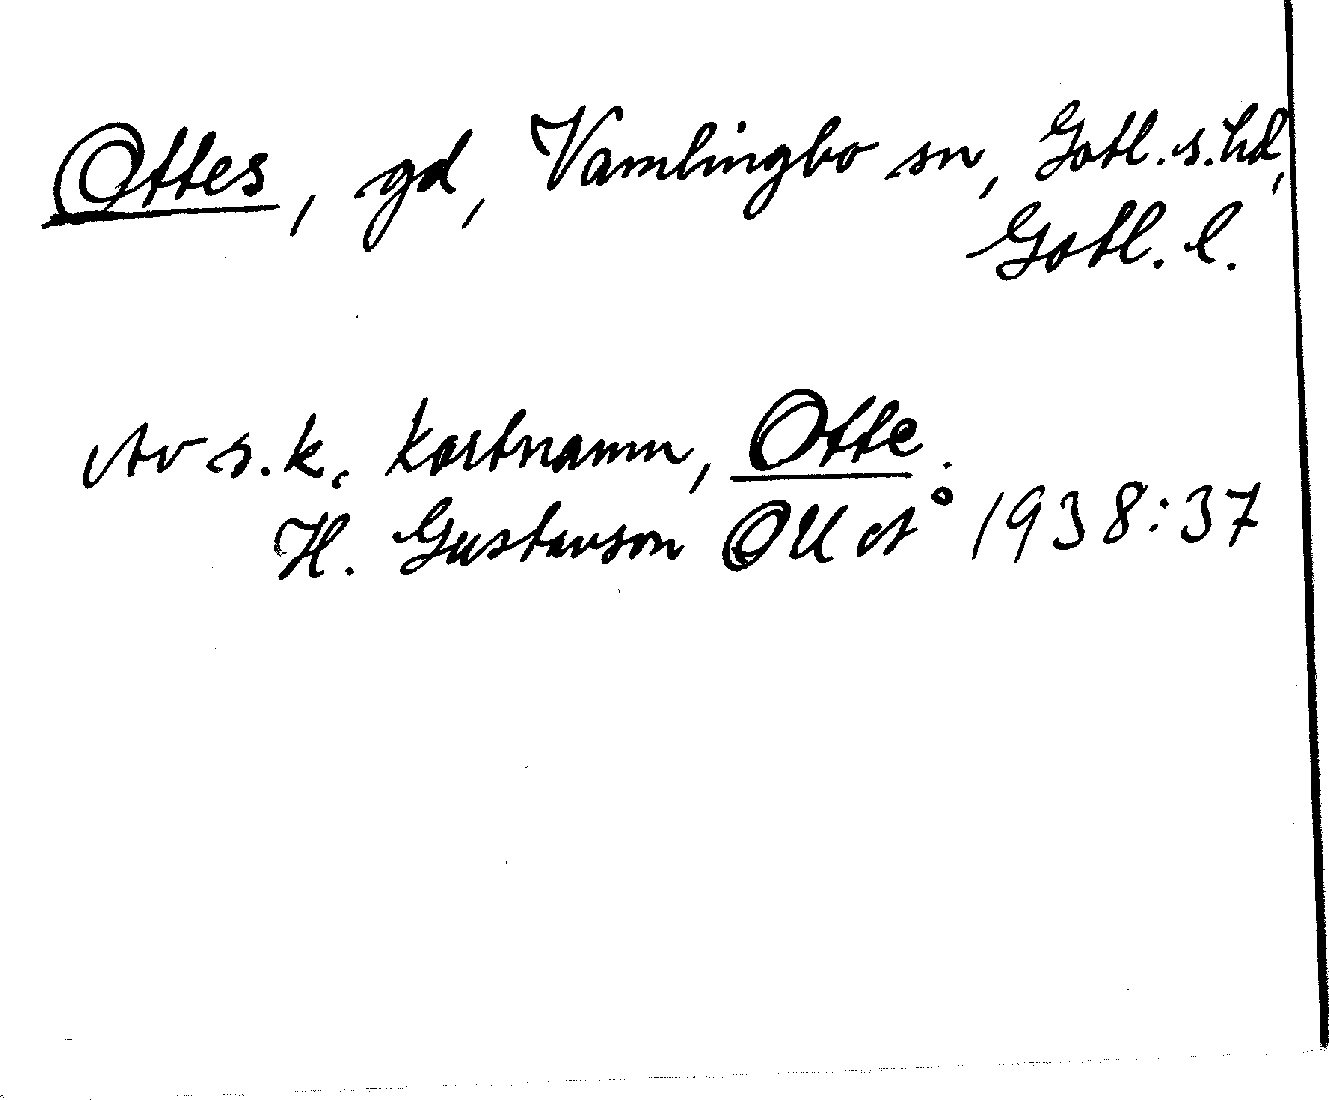 Ottes, gd, Vamlingbo sn, Gotl. s. hd,
Gotl. l.
Av s.k. kortnamn, Otte.
H. Gustavson OUÅ 1938:37